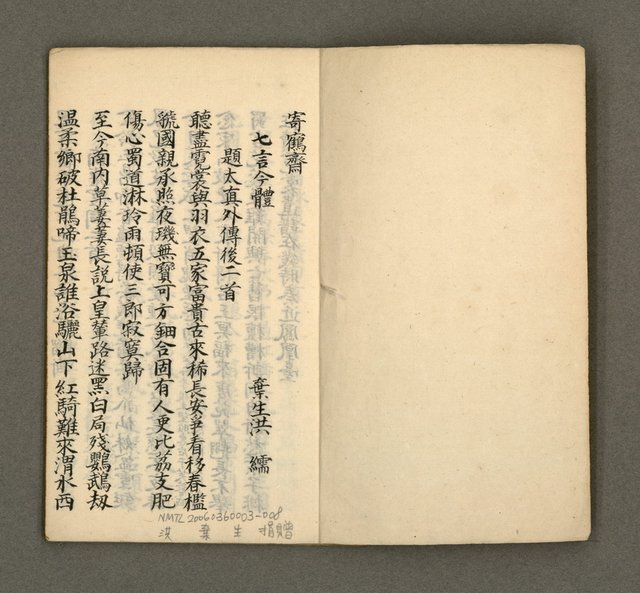 寄鶴齋
七言今體 棄生洪 繻
題太真外傳後二首
聽盡霓裳與羽衣五家富貴古來稀長安爭看移春檻
虢國親承照夜璣無寶可方鈿合固有人更比荔支肥
傷心蜀道淋玲雨頓使三郎寂寞歸
至今南內草萋萋長說上皇輦路迷黑白局殘鸚鵡刼
温柔鄉破杜鵑啼玉泉誰浴驪山下紅騎難來渭水西
NMTL 20060360003-008
洪 棄 生 捐贈